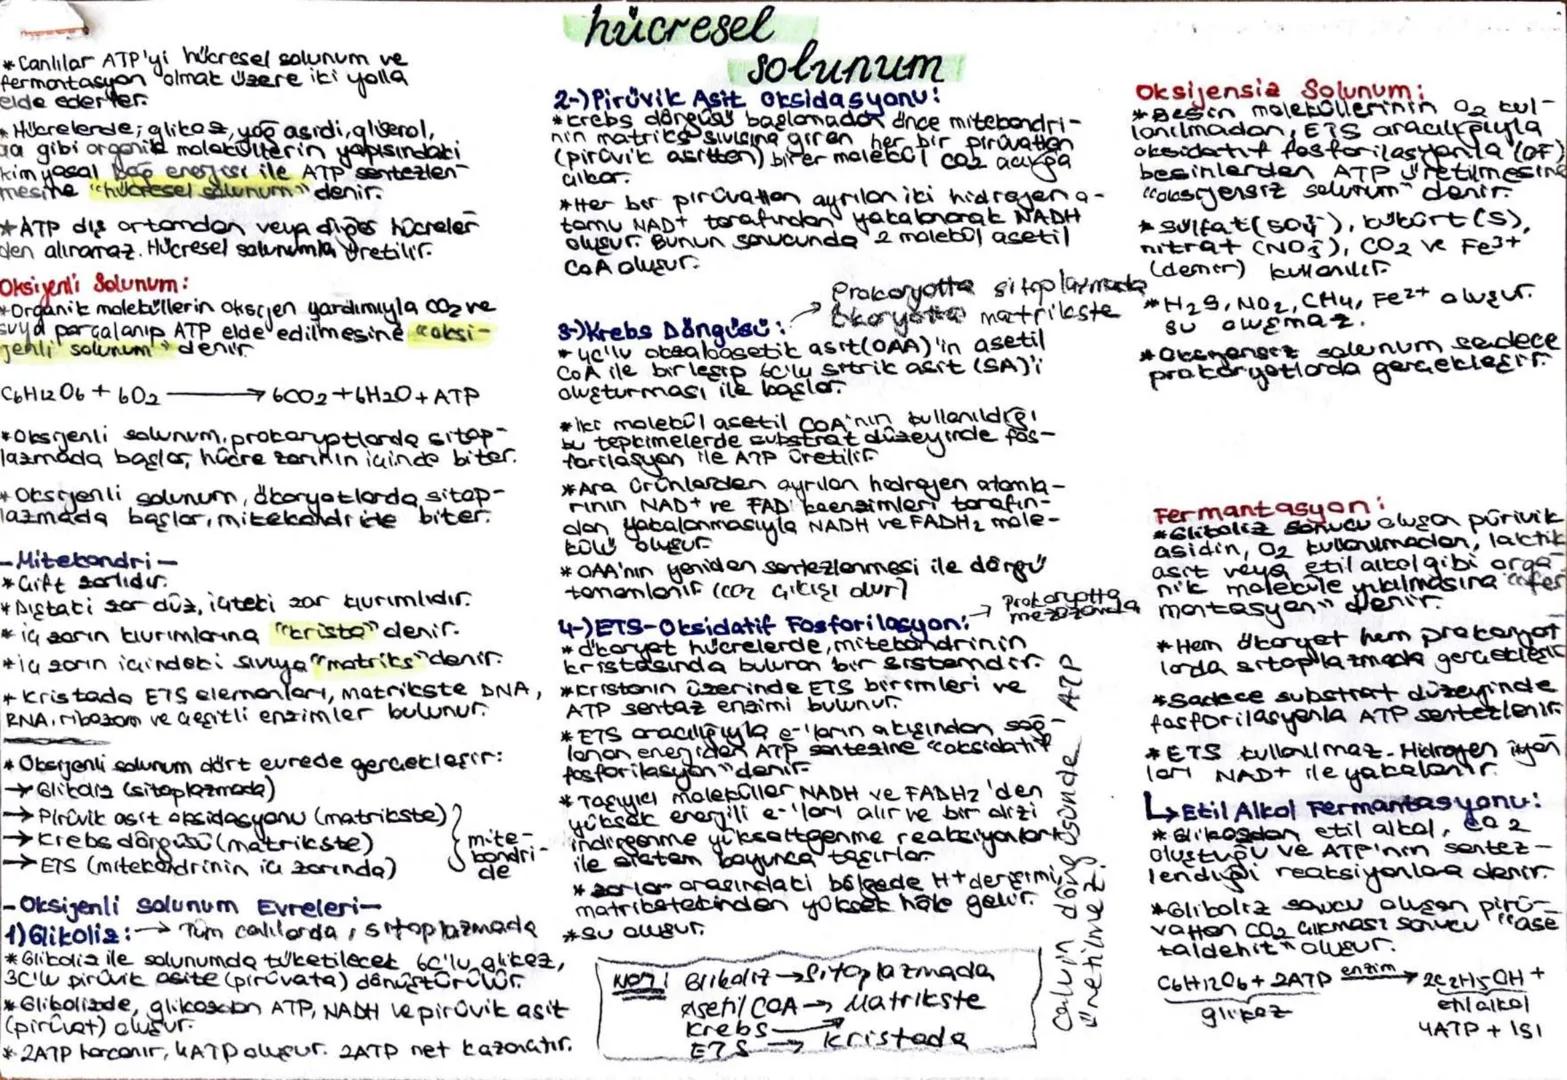 hücresel
solunum
* Canlılar ATP'yi hücresel solunum ve
fermantasyon olmak üzere iki yolla
elde ederler.
* Hücrelerde; glikoz, yağ asidi, gliserol,
aa gibi organik moleküllerin yapısındaki
kimyasal bağ enerjisi ile ATP sentezlen-
mesine "hücresel solunum" denir.
* ATP dış ortamdan veya diğer hücreler
den alınamaz. Hücresel solunumla üretilir.
Oksijenli Solunum:
* Organik moleküllerin oksijen yardımıyla CO2 ve
suya parçalanıp ATP elde edilmesine "oksi-
jenli solunum" denir
C6H12O6 + 6O2 → 6CO2 + 6H2O + ATP
* Oksijenli solunum, prokaryotlarda sitop-
lazmada başlar, hücre zarının içinde biter.
* Oksijenli solunum, ökaryotlarda sitop-
lazmada başlar, mitokondride biter.
- Mitokondri -
* Çift zarlıdır.
* Dıştaki zar düz, içteki zar kıvrımlıdır.
* iç zarın kıvrımlarına "krista" denir.
* iç zarın içindeki sıvıya "matriks" denir.
* Kristada ETS elemanları, matrikste DNA,
RNA, ribozom ve çeşitli enzimler bulunur.
* Oksijenli solunum dört evrede gerçekleşir:
→ Glikoliz (sitoplazmada)
→ Pirüvik asit oksidasyonu (matrikste)
→ Krebs döngüsü (matrikste)
→ ETS (mitokondrinin iç zarında)
mito-
kondri-
de
- Oksijenli Solunum Evreleri -
1) Glikoliz: → Tüm canlılarda, sitoplazmada
* Glikoliz ile solunumda tüketilecek 6C'lu glikoz,
3C'lu pirüvik asite (pirüvata) dönüştürülür.
* Glikolizde, glikozdan ATP, NADH ve pirüvik asit
(pirüvat) oluşur.
* 2ATP harcanır, 4ATP oluşur. 2ATP net kazançtır.
2-) Pirüvik Asit Oksidasyonu:
* Krebs döngüsü başlamadan önce mitokondri-
nin matriks sıvısına giren her bir pirüvattan
(pirüvik asitten) birer molekül CO2 açığa
çıkar.
* Her bir pirüvattan ayrılan iki hidrojen a-
tomu NAD+ tarafından yakalanarak NADH
oluşur. Bunun sonucunda 2 molekül asetil
CoA oluşur.
3-) Krebs Döngüsü: → Prokaryotta sitoplazmada
Ökaryotta matrikste
* 4C'lu okzaloasetik asit (OAA)'in asetil
CoA ile birleşip 6C'lu sitrik asit (SA)'i
oluşturması ile başlar.
* İki molekül asetil CoA'nın kullanıldığı
bu tepkimelerde substrat düzeyinde fos-
forilasyon ile ATP üretilir
* Ara ürünlerden ayrılan hidrojen atomla-
rının NAD+ ve FAD koenzimleri tarafın-
dan yakalanmasıyla NADH ve FADH2 mole-
külü oluşur
* OAA'nın yeniden sentezlenmesi ile döngü
tamamlanır (CO2 çıkışı olur)
4-) ETS-Oksidatif Fosforilasyon: → Prokaryotta
mezozomda
* ökaryot hücrelerde, mitokondrinin
kristasında bulunan bir sistemdir.
* Kristanın üzerinde ETS birimleri ve
ATP sentaz enzimi bulunur.
* ETS aracılığıyla e-'ların akışından sağ-
lanan enerjiden ATP sentezine "oksidatif
fosforilasyon" denir.
* Taşıyıcı moleküller NADH ve FADH2'den
yüksek enerjili e-'ları alır ve bir dizi
indirgenme yükseltgenme reaksiyonları
ile sistem boyunca taşırlar.
* zarlar arasındaki bölgede H+ derişimi,
matrikstekinden yüksek hale gelir.
* su oluşur.
NOT: Glikoliz → Sitoplazmada
Asetil COA → Matrikste
Krebs
ETS → Kristada
Calvin döngüsünde ATP
üretilmez!
Oksijensiz Solunum:
* Besin moleküllerinin O2 kul-
lanılmadan, ETS aracılığıyla
oksidatif fosforilasyonla (OF)
besinlerden ATP üretilmesine
"oksijensiz solunum" denir.
* Sülfat (SO4²-), kükürt (S),
nitrat (NO3-), CO2 ve Fe3+
(demir) kullanılır.
* H2S, NO2, CH4, Fe2+ oluşur.
su oluşmaz.
* Oksijensiz solunum sadece
prokaryotlarda gerçekleşir.
Fermantasyon:
* Glikoliz sonucu oluşan pürivik
asidin, O2 kullanılmadan, laktik
asit veya etil alkol gibi orga
nik moleküle yıkılmasına "fer
mantasyon" denir.
* Hem ökaryot hem prokaryot
larda sitoplazmada gerçekleşir
* Sadece substrat düzeyinde
fosforilasyonla ATP sentezlenir.
* ETS kullanılmaz. Hidrojen iyon
ları NAD+ ile yakalanır.
↳ Etil Alkol Fermantasyonu:
* Glikozdan etil alkol, CO2
oluştuğu ve ATP'nin sentez-
lendiği reaksiyonlara denir.
* Glikoliz sonucu oluşan pirü-
vattan CO2 çıkması sonucu "ase
taldehit" oluşur.
C6H12O6 + 2ATP enzim → 2C2H5OH +
glikoz etil alkol
4ATP + ısı